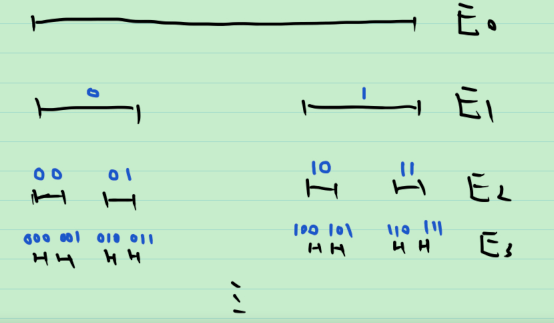 E₀
0 1 E₁
00 01 10 11 E₂
000 001 010 011 100 101 110 111 E₃
⋮